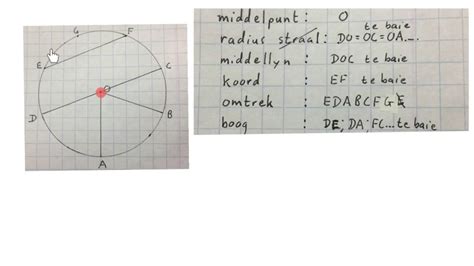 G
F
E
C
O
D
B
A
middelpunt : O
te baie
radius straal: DO=OC=OA....
middellyn : DOC te baie
koord : EF te baie
omtrek : EDABCFGE
boog : DE; DA; FC... te baie